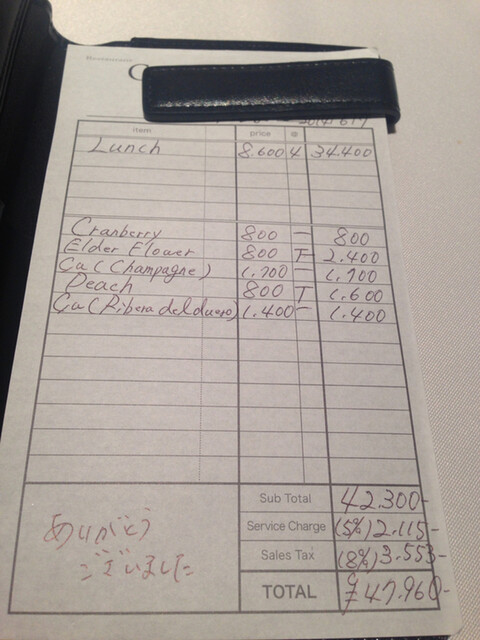 Restaurant
item price @
Lunch 8.600 4 34.400
Cranberry 800 一 800
Elder Flower 800 下 2.400
Ca (Champagne) 1.700 一 1.700
Peach 800 T 1.600
Ca (Ribera del duero) 1.400 一 1.400
Sub Total 42.300-
Service Charge (5%) 2.115-
Sales Tax (8%) 3.553-
TOTAL ¥47.960-
ありがとう
ございました